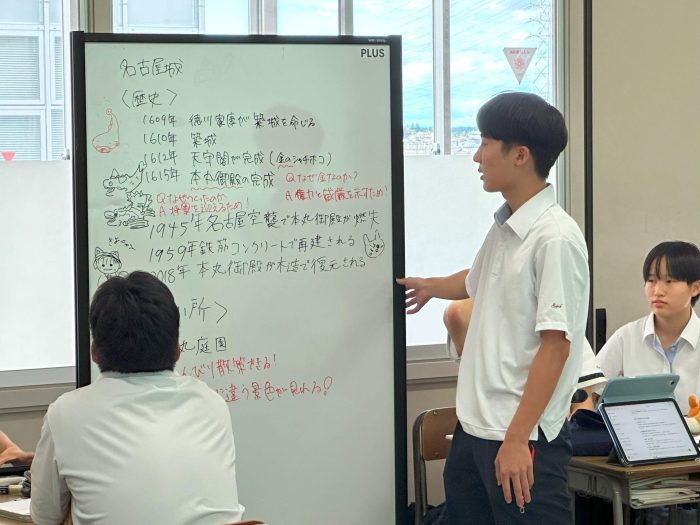 PLUS
名古屋城
〈歴史〉
1609年 徳川家康が築城を命じる
1610年 築城
1612年 天守閣が完成(金のシャチホコ)
1615年 本丸御殿の完成 Q なぜ金なのか?
Q なぜつくったのか
A 将軍を迎えるため! A 権力と威厳を示すため!
1945年 名古屋空襲で本丸御殿が焼失
きよっさん
1959年 鉄筋コンクリートで再建される
2018年 本丸御殿が木造で復元される
所〉
丸庭園
んびり散策できる!
違う景色が見れる!